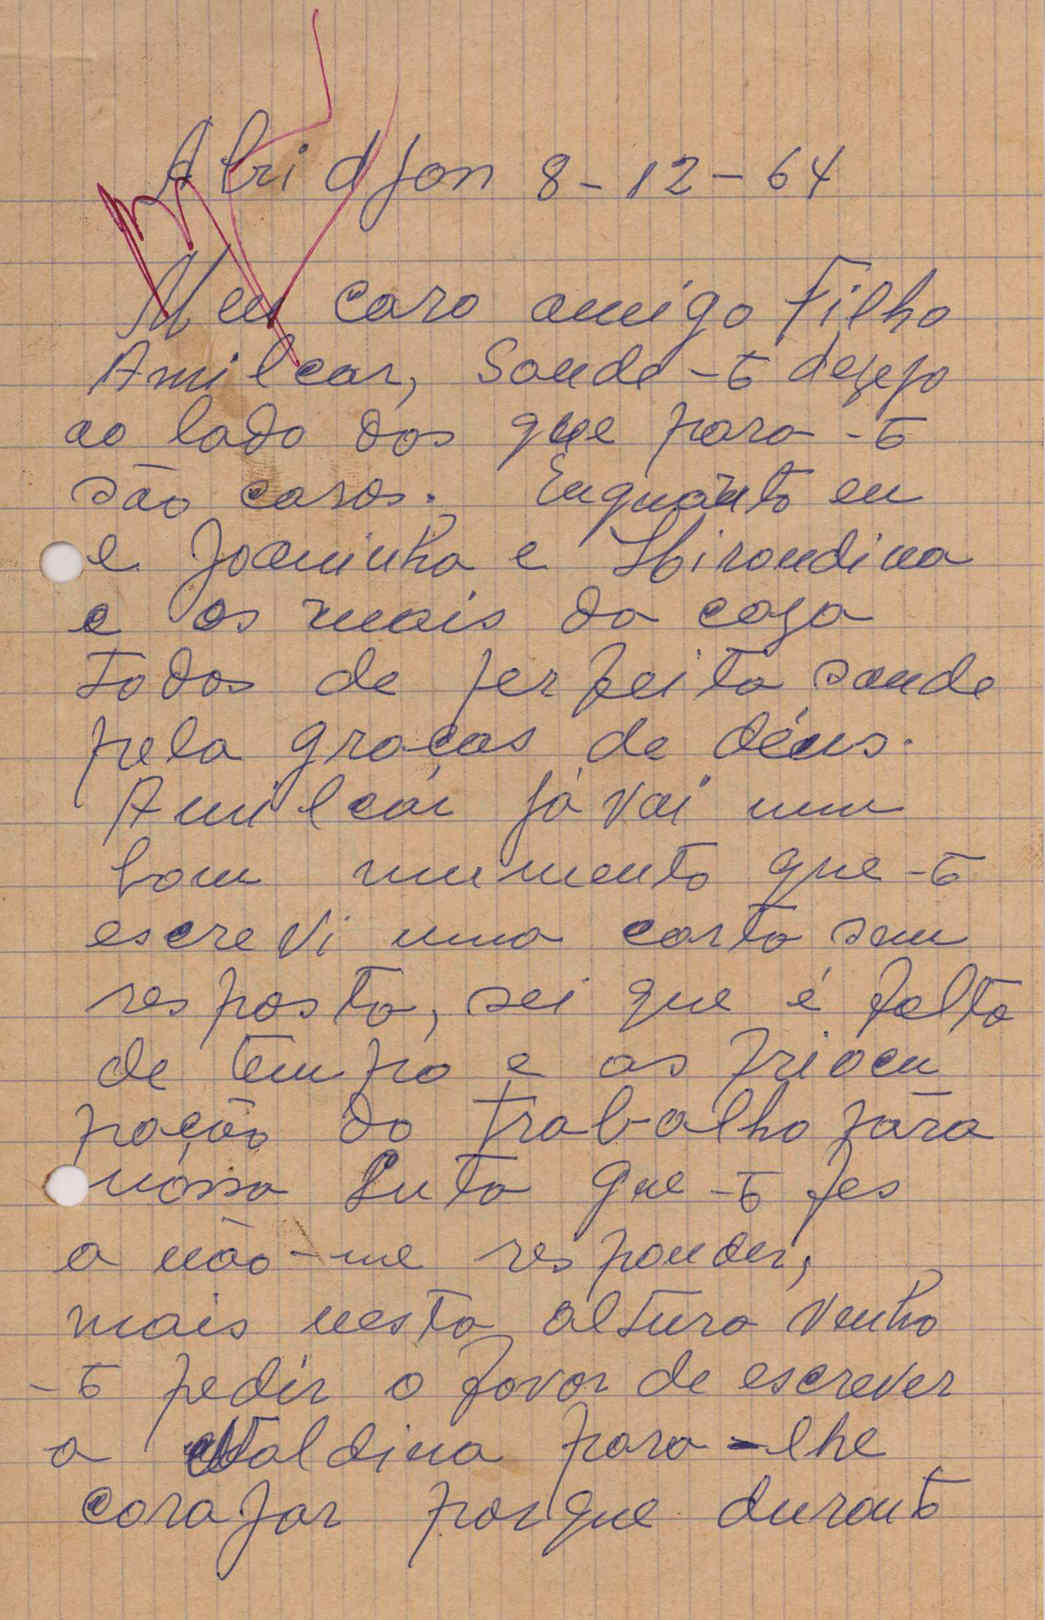 Abridjon 8-12-64
Meu caro amigo Filho
Amilcar, Saude-te dezejo
ao lado dos que para-te
são caros. Enquanto eu
e Joaninha e Hirondina
e os mais da caza
todos de perfeita saude
pela graças de déus.
Amilcar já vai um
bom mumento que-te
escrevi uma carta sem
resposta, sei que é falta
de tempo e as priocu
pação do trabalho pára
nóssa Luta que-te fes
a não-me responder,
mais nesta altura venho
-te pedir o favor de escrever
a para-lhe
corajar porque durante